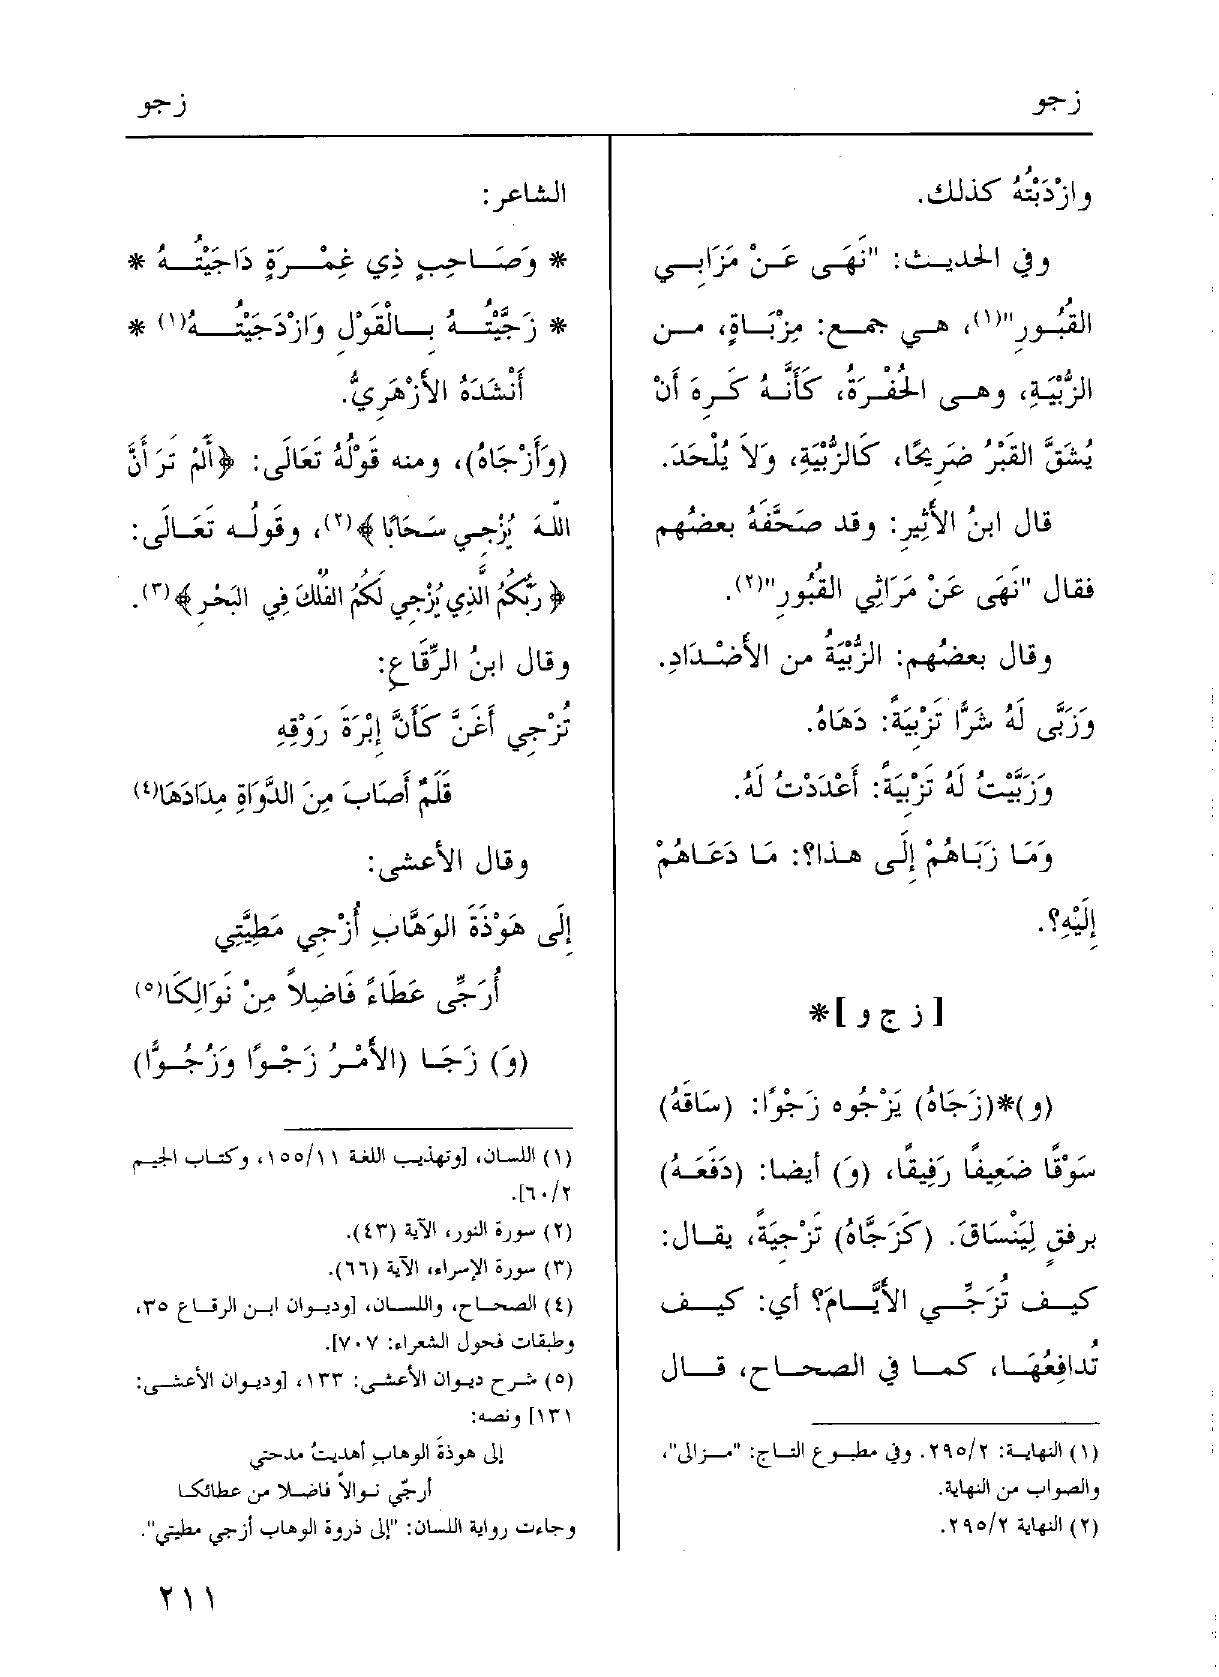 زجو
زجو
وازْدَبْتُهُ كذلك.
وفي الحديث: "نَهَى عَنْ مَزَابِي
القُبُورِ"(١)، هي جمع: مِزْبَاةٍ، من
الزُّبْيَةِ، وهى الحُفْرَةُ، كَأَنَّهُ كَرِهَ أَنْ
يُشَقَّ القَبْرُ ضَرِيحًا، كَالزُّبْيَةِ، وَلاَ يُلْحَدَ.
قال ابنُ الأَثِيرِ: وقد صَحَّفَهُ بعضُهم
فقال "نَهَى عَنْ مَرَاثِي القُبُورِ"(٢).
وقال بعضُهم: الزُّبْيَةُ من الأَضْدَادِ.
وَزَبَّى لَهُ شَرًّا تَزْبِيَةً: دَهَاهُ.
وَزَبَّيْتُ لَهُ تَزْبِيَةً: أَعْدَدْتُ لَهُ.
وَمَا زَبَاهُمْ إِلَى هذا؟: مَا دَعَاهُمْ
إِلَيْهِ؟.
[ ز ج و ]*
(و)*(زَجَاهُ) يَزْجُوه زَجْوًا: (سَاقَهُ)
سَوْقًا ضَعِيفًا رَفِيقًا، (وَ) أيضا: (دَفَعَهُ)
برفقٍ لِيَنْسَاقَ. (كَزَجَّاهُ) تَزْجِيَةً، يقال:
كيف تُزَجِّي الأَيَّامَ؟ أي: كيف
تُدافِعُهَا، كما في الصحاح، قال
(١) النهاية: ٢٩٥/٢. وفي مطبوع التاج: "مزالى"،
والصواب من النهاية.
(٢) النهاية ٢٩٥/٢.
الشاعر:
* وَصَاحِبٍ ذِي غِمْرَةٍ دَاجَيْتُهُ *
* زَجَّيْتُهُ بِالْقَوْلِ وَازْدَجَيْتُهُ(١) *
أَنْشَدَهُ الأَزْهَرِيُّ.
(وَأَزْجَاهُ)، ومنه قَوْلُهُ تَعَالَى: ﴿أَلَمْ تَرَ أَنَّ
اللهَ يُزْجِي سَحَابًا﴾(٢)، وقَولُه تَعَالَى:
﴿رَبُّكُمُ الَّذِي يُزْجِي لَكُمُ الفُلْكَ فِي البَحْرِ﴾(٣).
وقال ابنُ الرِّقَاعِ:
تُزْجِي أَغَنَّ كَأَنَّ إِبْرَةَ رَوْقِهِ
قَلَمٌ أَصَابَ مِنَ الدَّوَاةِ مِدَادَهَا(٤)
وقال الأعشى:
إِلَى هَوْذَةَ الوَهَّابِ أُزْجِي مَطِيَّتِي
أُرَجِّى عَطَاءً فَاضِلاً مِنْ نَوَالِكَا(٥)
(وَ) زَجَا (الأَمْرُ زَجْوًا وَزُجُوًّا)
(١) اللسان، [وتهذيب اللغة ١٥٥/١١، وكتاب الجيم
٦٠/٢].
(٢) سورة النور، الآية (٤٣).
(٣) سورة الإسراء، الآية (٦٦).
(٤) الصحاح، واللسان، [وديوان ابن الرقاع ٣٥،
وطبقات فحول الشعراء: ٧٠٧].
(٥) شرح ديوان الأعشى: ١٣٣، [وديوان الأعشى:
١٣١] ونصه:
إلى هوذةَ الوهابِ أهديتُ مدحتي
أرجّي نوالاً فاضلا من عطائكا
وجاءت رواية اللسان: "إلى ذروة الوهاب أزجي مطيتي".
٢١١